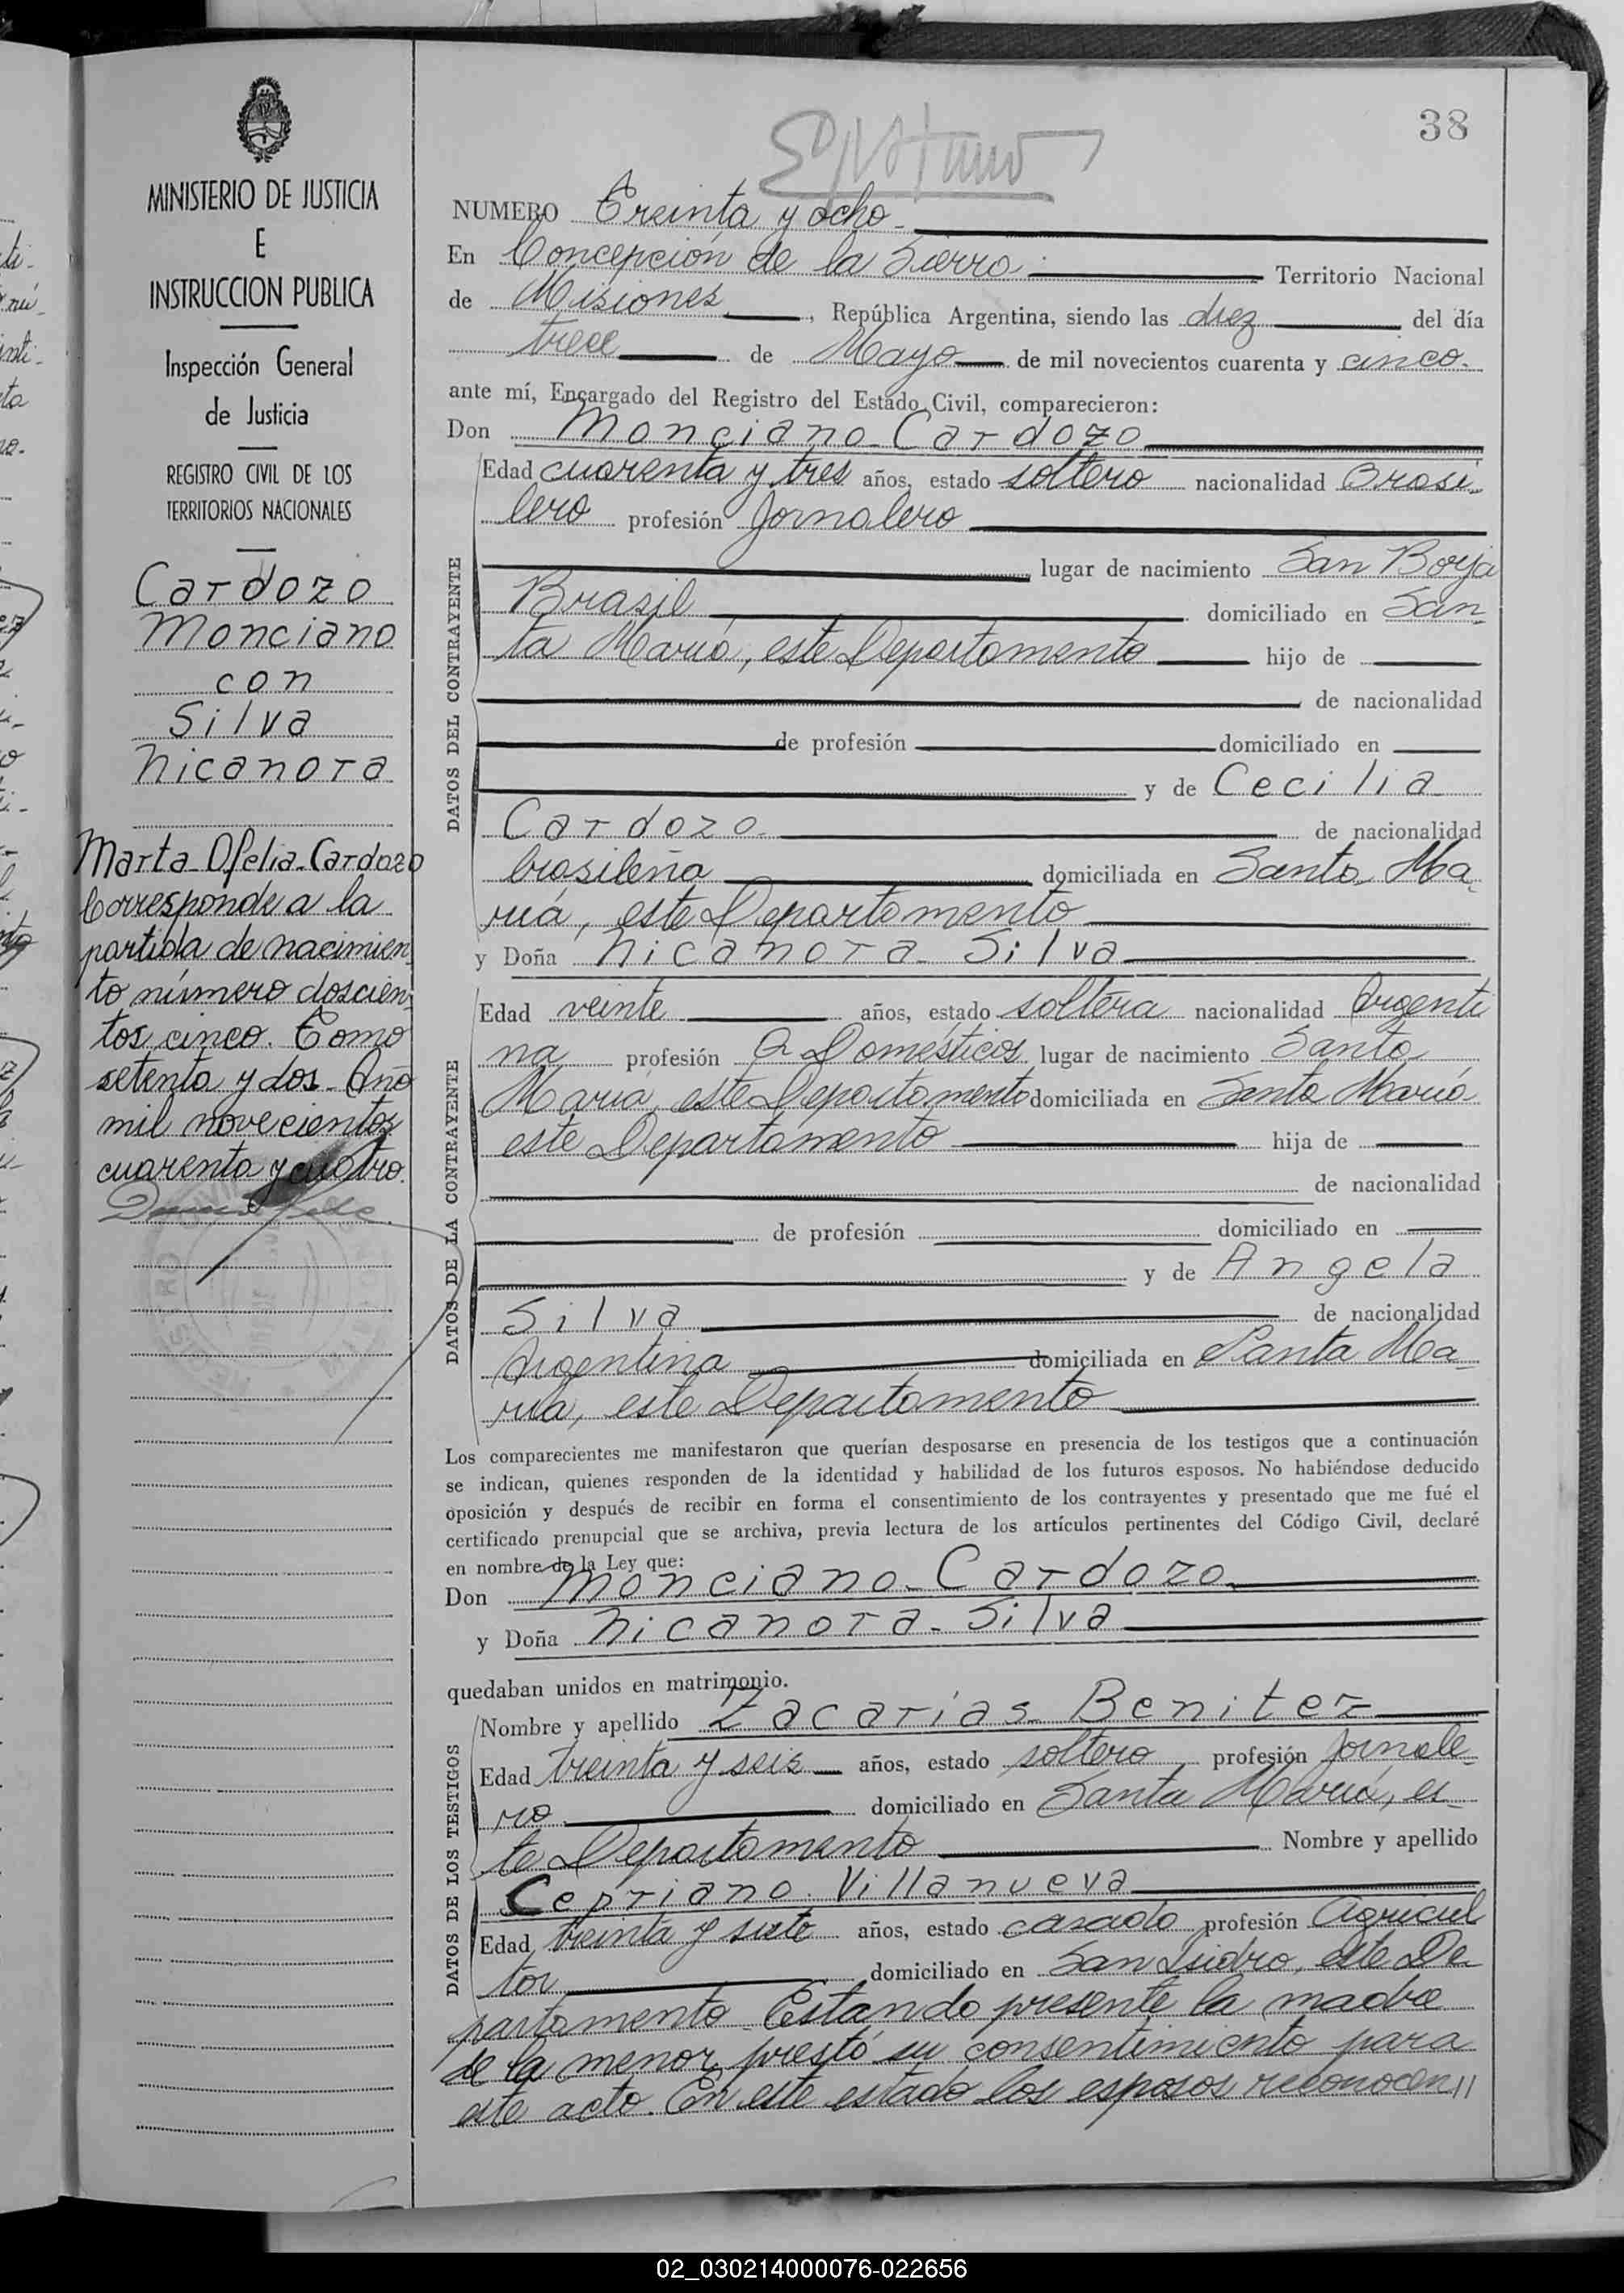 38
MINISTERIO DE JUSTICIA
E
INSTRUCCION PUBLICA
Inspección General
de Justicia
REGISTRO CIVIL DE LOS
TERRITORIOS NACIONALES
Cardozo
Monciano
con
Silva
Nicanora
Marta Ofelia Cardozo
Corresponde a la
partida de nacimien
to número doscien-
tos cinco. Tomo
setenta y dos. Año
mil novecientos
cuarenta y cuatro.
NUMERO Treinta y ocho
En Concepción de la Sierra Territorio Nacional
de Misiones, República Argentina, siendo las diez del día
trece de Mayo de mil novecientos cuarenta y cinco.
ante mí, Encargado del Registro del Estado Civil, comparecieron:
Don Monciano Cardozo
DATOS DEL CONTRAYENTE
Edad cuarenta y tres años, estado soltero nacionalidad Brasi-
lero profesión Jornalero
lugar de nacimiento San Borja
Brasil domiciliado en San-
ta María, este Departamento hijo de
de nacionalidad
de profesión domiciliado en
y de Cecilia
Cardozo de nacionalidad
brasileña domiciliada en Santa Ma-
ría, este Departamento
y Doña Nicanora Silva
DATOS DE LA CONTRAYENTE
Edad veinte años, estado soltera nacionalidad Argenti
na profesión Q. Domésticos lugar de nacimiento Santa
María, este Departamento domiciliada en Santa María
este Departamento hija de
de nacionalidad
de profesión domiciliado en
y de Angela
Silva de nacionalidad
Argentina domiciliada en Santa Ma-
ría, este Departamento
Los comparecientes me manifestaron que querían desposarse en presencia de los testigos que a continuación
se indican, quienes responden de la identidad y habilidad de los futuros esposos. No habiéndose deducido
oposición y después de recibir en forma el consentimiento de los contrayentes y presentado que me fué el
certificado prenupcial que se archiva, previa lectura de los artículos pertinentes del Código Civil, declaré
en nombre de la Ley que:
Don Monciano Cardozo
y Doña Nicanora Silva
quedaban unidos en matrimonio.
DATOS DE LOS TESTIGOS
Nombre y apellido Zacarías Benitez
Edad treinta y seis años, estado soltero profesión Jornale-
ro domiciliado en Santa María, es-
te Departamento Nombre y apellido
Cepriano Villanueva
Edad treinta y siete años, estado casado profesión Agricul
tor domiciliado en San Isidro, este De-
partamento. Estando presente la madre
de la menor prestó su consentimiento para
este acto. En este estado los esposos reconocen //
02_030214000076-022656